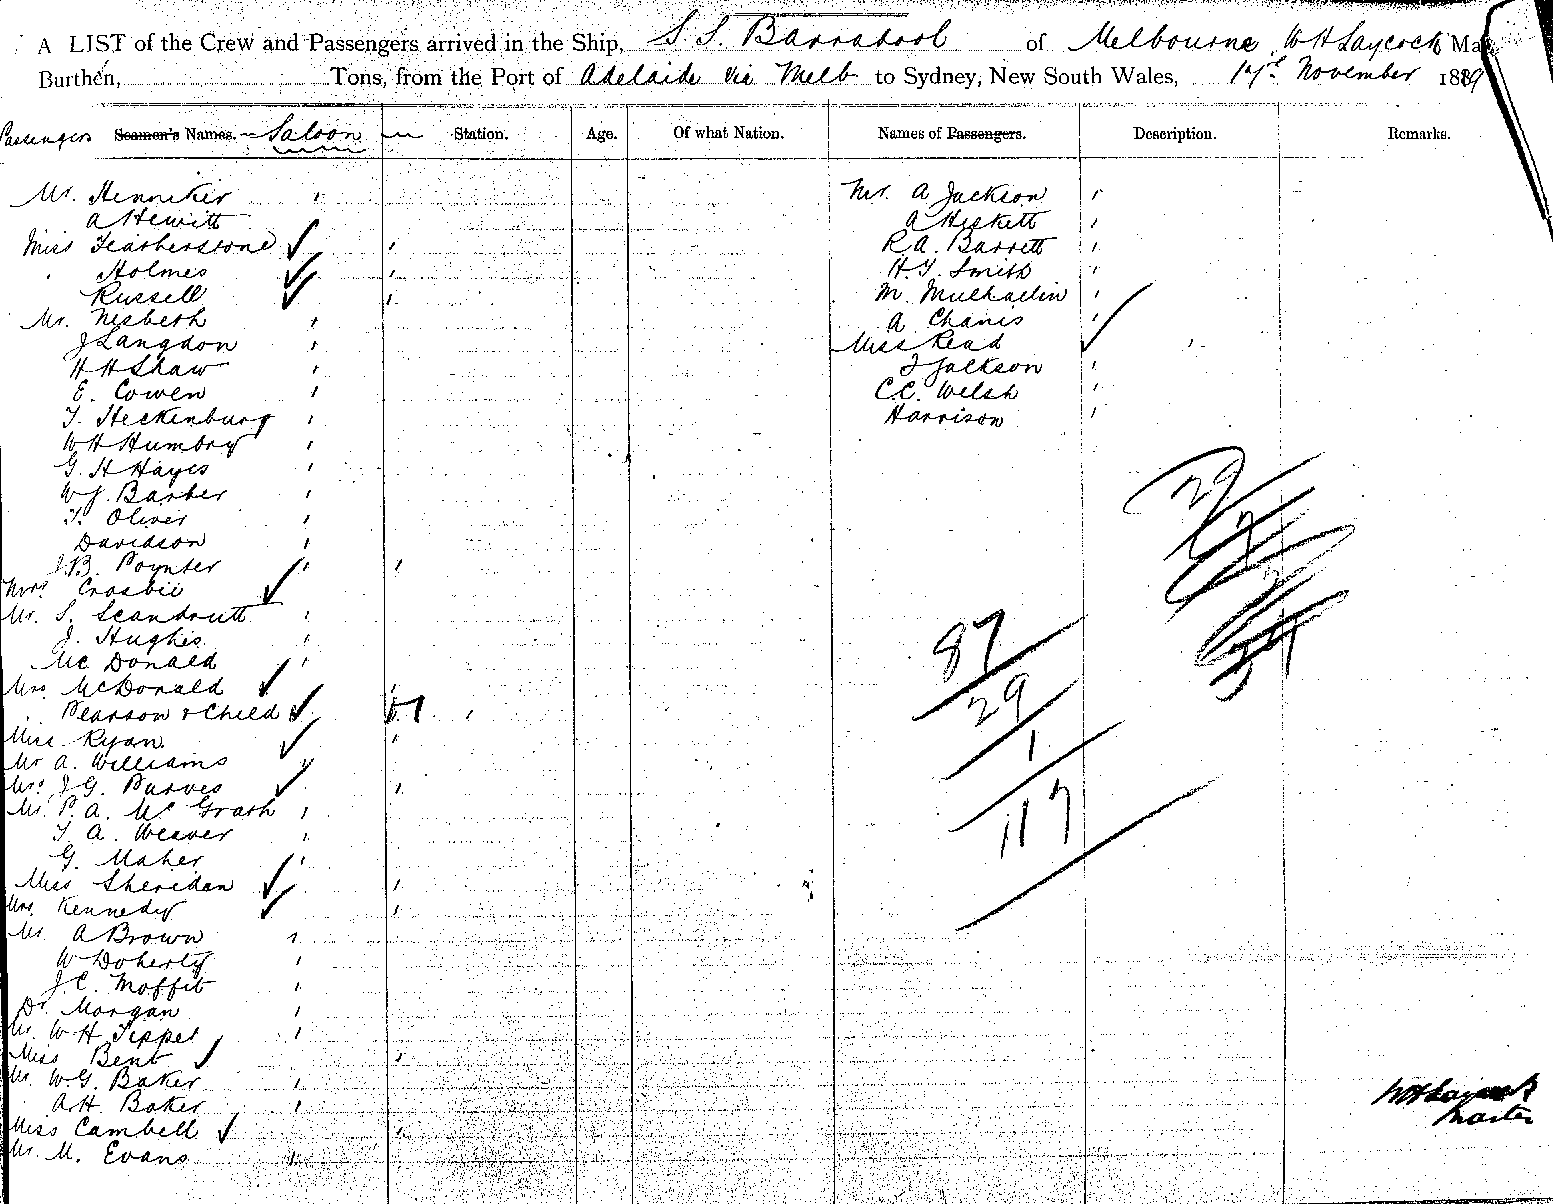 A LIST of the Crew and Passengers arrived in the Ship, S S. Barrabool of Melbourne W H Laycock Mas
Burthen, Tons, from the Port of Adelaide via Melb to Sydney, New South Wales, 17th November 1889
Passengers Seamen's Names. Saloon Station. Age. Of what Nation. Names of Passengers. Description. Remarks.
Mr. Henneker
A Hewitt
Miss Featherstone
Holmes
Russell
Mr. Nesbeth
J Langdon
H H Shaw
E. Cowen
T. Heckenburg
W H Humbry
G. H Hayes
W J. Barber
T. Oliver
Davidson
J. B. Poynter
Mrs Crosbie
Mr. S. Scandrett
J. Hughes
Mc Donald
Mrs McDonald
Pearson & Child
Miss Ryan
Mr A. Williams
Mrs J. G. Purves
Mr. P. A. Mc Grath
T. A. Weaver
G. Maher
Miss Sheridan
Mrs. Kennedy
Mr A Brown
W Doherty
J. C. Moffit
Dr. Morgan
Mr. W H Tippet
Miss Bent
Mr. W. G. Baker
A. H. Baker
Miss Cambell
Mr. M. Evans
Mr. A Jackson
A Heskett
R. A. Barrett
H. T. Smith
M.
A Chanis
Miss Read
J Jackson
C C. Welsh
Harrison
29
7
87
29
1
117
W H Laycock
Master